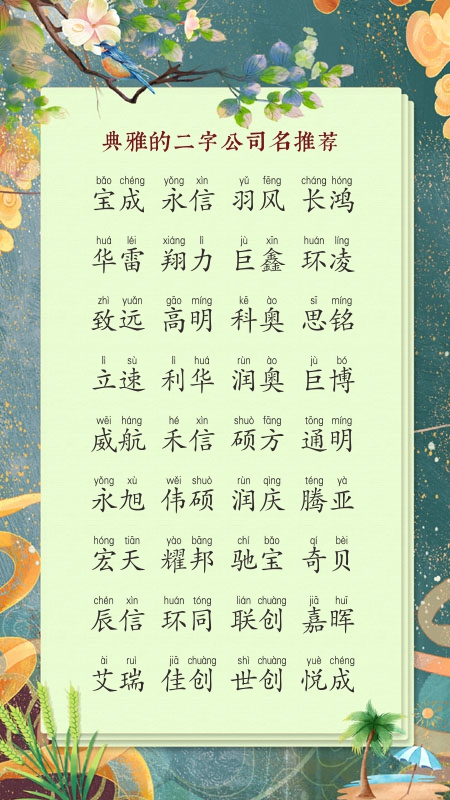 典雅的二字公司名推荐
bǎo chéng yǒng xìn yǔ fēng cháng hóng
宝成 永信 羽风 长鸿
huá léi xiáng lì jù xīn huán líng
华雷 翔力 巨鑫 环凌
zhì yuǎn gāo míng kē ào sī míng
致远 高明 科奥 思铭
lì sù lì huá rùn ào jù bó
立速 利华 润奥 巨博
wēi háng hé xìn shuò fāng tōng míng
威航 禾信 硕方 通明
yǒng xù wěi shuò rùn qìng téng yà
永旭 伟硕 润庆 腾亚
hóng tiān yào bāng chí bǎo qí bèi
宏天 耀邦 驰宝 奇贝
chén xìn huán tóng lián chuàng jiā huī
辰信 环同 联创 嘉晖
ài ruì jiā chuàng shì chuàng yuè chéng
艾瑞 佳创 世创 悦成